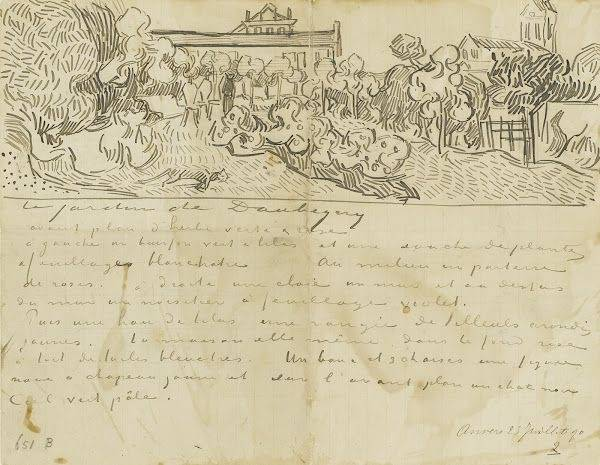 Le jardin de Daubigny
avant plan d'herbe verte & rose
à gauche un buisson vert & lilas et une souche de plantes
à feuillages blanchatre Au milieu un parterre
de roses. à droite une claie un mur et au dessus
du mur un noisetier à feuillage violet.
Puis une haie de lilas une rangée de tilleuls arrondis
jaunes. La maison elle même dans le fond rose
à toit de tuiles bleuatres. Un banc et 3 chaises une figure
noire à chapeau jaune et sur l'avant plan un chat noir
Ciel vert pâle.
651 B
Auvers 23 Juillet 90
2